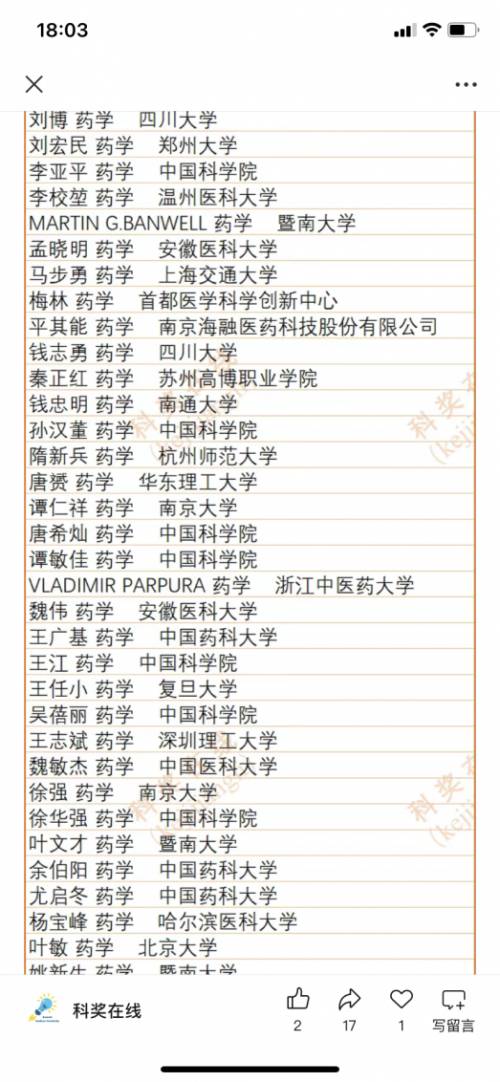 18:03
刘博 药学 四川大学
刘宏民 药学 郑州大学
李亚平 药学 中国科学院
李校堃 药学 温州医科大学
MARTIN G.BANWELL 药学 暨南大学
孟晓明 药学 安徽医科大学
马步勇 药学 上海交通大学
梅林 药学 首都医学科学创新中心
平其能 药学 南京海融医药科技股份有限公司
钱志勇 药学 四川大学
秦正红 药学 苏州高博职业学院
钱忠明 药学 南通大学
孙汉董 药学 中国科学院
隋新兵 药学 杭州师范大学
唐赟 药学 华东理工大学
谭仁祥 药学 南京大学
唐希灿 药学 中国科学院
谭敏佳 药学 中国科学院
VLADIMIR PARPURA 药学 浙江中医药大学
魏伟 药学 安徽医科大学
王广基 药学 中国药科大学
王江 药学 中国科学院
王任小 药学 复旦大学
吴蓓丽 药学 中国科学院
王志斌 药学 深圳理工大学
魏敏杰 药学 中国医科大学
徐强 药学 南京大学
徐华强 药学 中国科学院
叶文才 药学 暨南大学
余伯阳 药学 中国药科大学
尤启冬 药学 中国药科大学
杨宝峰 药学 哈尔滨医科大学
叶敏 药学 北京大学
姚新生 药学 暨南大学
科奖在线
2
17
1
写留言